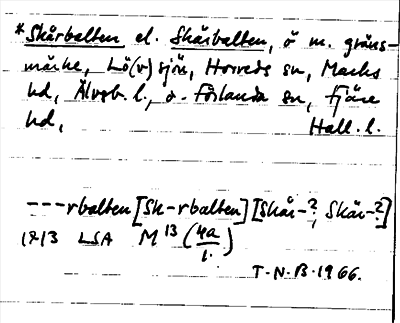 *Skårbalten el. Skärbalten, ö m. gräns-
märke, Lö(v)sjön, Horreds sn, Marks
hd, Älvsb. l., o. Förlanda sn, Fjäre
hd, Hall. l.
---rbalten [Sk-rbalten] [Skår-?, Skär-?]
1813 LSA M 13 (4a/1.)
T.N.B. 1966.